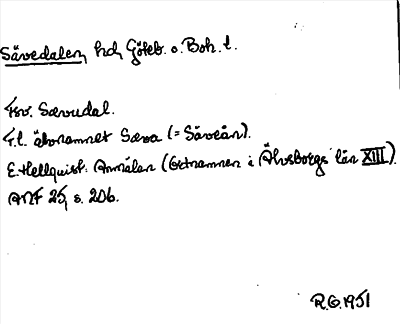 Sävedalen, hd, Göteb. o. Boh. l.
Fsv. Sævudal.
T.l. åbonamnet Sæva (= Säveån).
E. Hellquist. Anmälan (Ortnamnen i Älvsborgs län XIII).
ANF 25, s. 206.
R.G. 1951